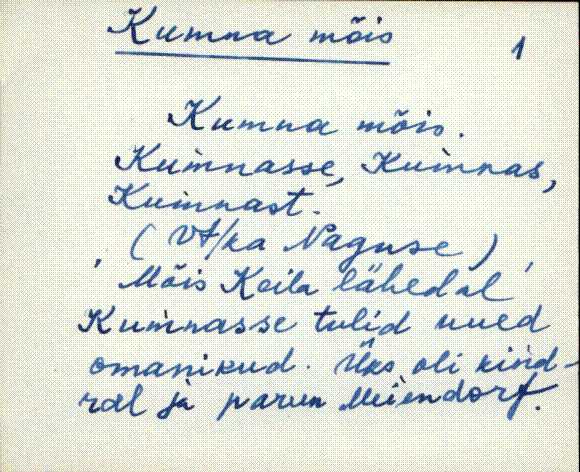 Kumna mõis
1
Kumna mõis.
Kuìmnasse, Kuìmnas,
Kuìmnast.
(Vt/ka Naguse)
' Mõis Keila lähedal '
Kuìmnasse tulid uued
omanikud. Üks oli kind-
ral ja parun Meiendorf.